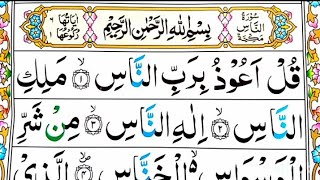 سُوْرَةُ النَّاسِ مَكِّيَّةٌ
بِسْمِ اللهِ الرَّحْمٰنِ الرَّحِيْمِ
اٰيَاتُهَا ٦ رُكُوْعُهَا ١
قُلْ اَعُوْذُ بِرَبِّ النَّاسِ ۝١ مَلِكِ
النَّاسِ ۝٢ اِلٰهِ النَّاسِ ۝٣ مِنْ شَرِّ
الْوَسْوَاسِ الْخَنَّاسِ ۝٤ الَّذِيْ